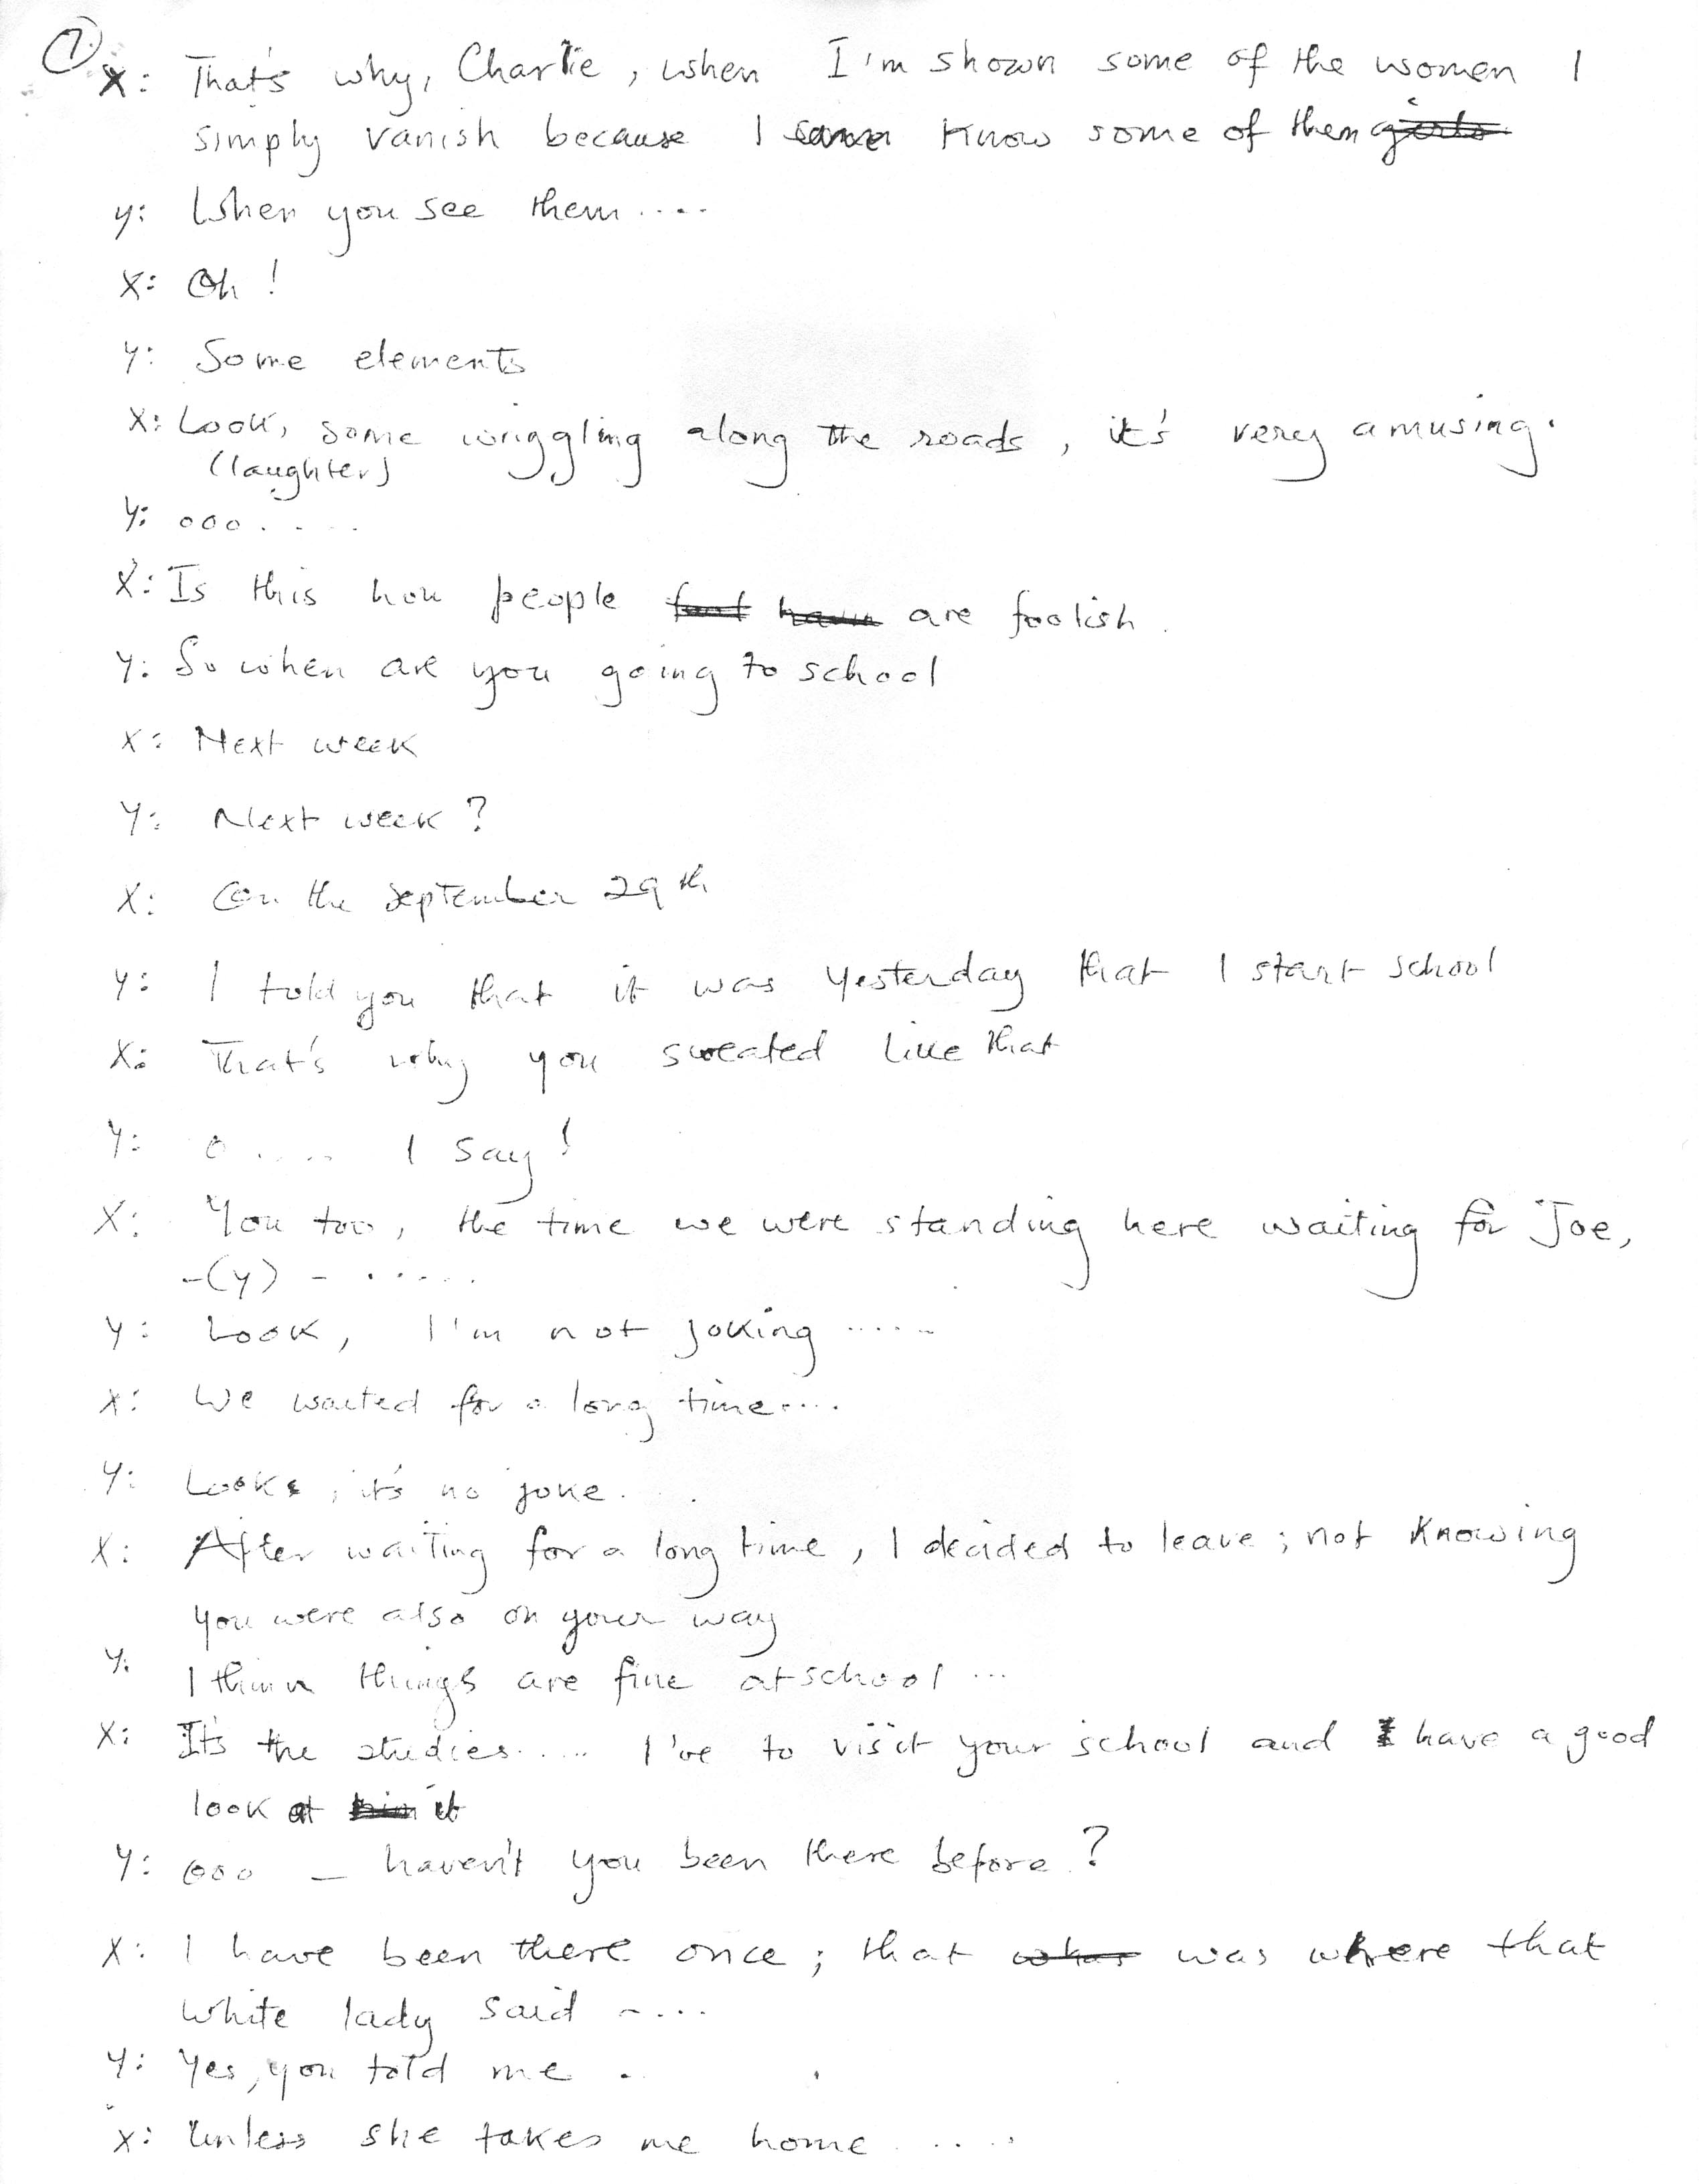 7.
X: That's why, Charlie, when I'm shown some of the women I
simply vanish because I know some of them
y: When you see them....
X: Oh!
Y: Some elements
X: Look, some wriggling along the roads, it's very amusing.
(laughter)
Y: ooo.....
X: Is this how people are foolish.
Y: So when are you going to school
X: Next week
Y: Next week?
X: On the September 29th
Y: I told you that it was yesterday that I start school
X: That's why you sweated like that
Y: O..... I say!
X: You too, the time we were standing here waiting for Joe,
-(y) - ......
Y: Look, I'm not joking .....
X: We waited for a long time....
Y: Look, it's no joke.
X: After waiting for a long time, I decided to leave; not knowing
you were also on your way
Y: I think things are fine at school ...
X: It's the studies..... I've to visit your school and have a good
look at it
Y: ooo _ haven't you been there before?
X: I have been there once; that was where that
white lady said ....
Y: Yes, you told me.
X: Unless she takes me home .....